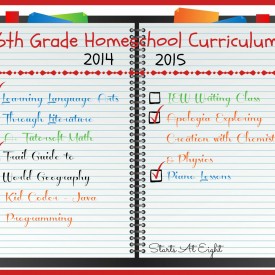 6th Grade Homeschool Curriculum
2014
2015
Learning Language Arts
Through Literature
Tutorsoft Math
Trail Guide to
World Geography
Kid Coder - Java
Programming
IEW Writing Class
Apologia Exploring
Creation with Chemistry
& Physics
Piano Lessons
Starts At Eight